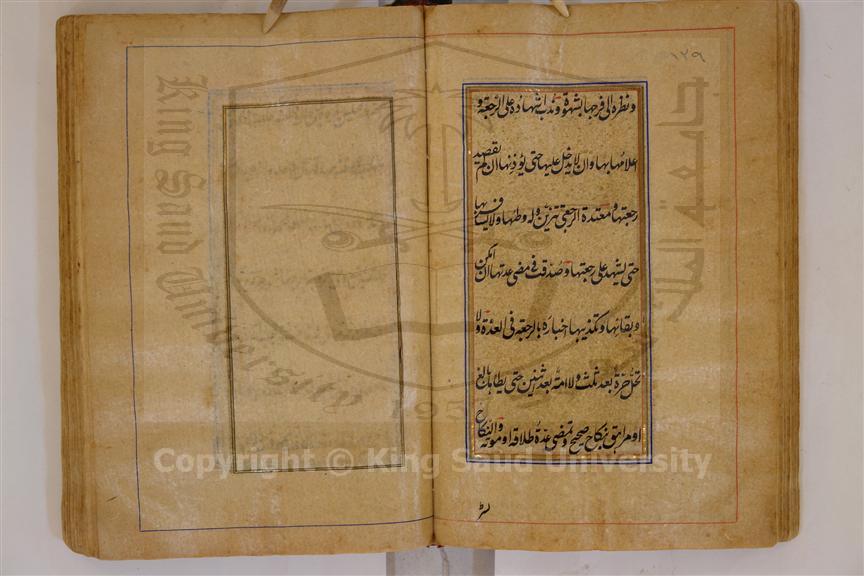 ١٢٩
ونظره الى فرجها بشهوة وندب اشهاده على الرجعة و
اعلامها بها وان لا يدخل عليها حتى يؤذنها ان لم يقصد
رجعتها ومعتدة الرجعي تتزين وله وطيها ولا يسافر بها
حتى يشهد على رجعتها وصدقت في مضى عدتها ان امكن
وبقائها وتكذيبها اخباره بالرجعة فى العدة ولا
تحل حرة بعد ثلث ولا امة بعد ثنتين حتى يطاها بالغ
او مراهق بنكاح صحيح وتمضى عدة طلاقه او موته والنكاح
King Saud University
جامعة الملك
195
Copyright © King Saud University